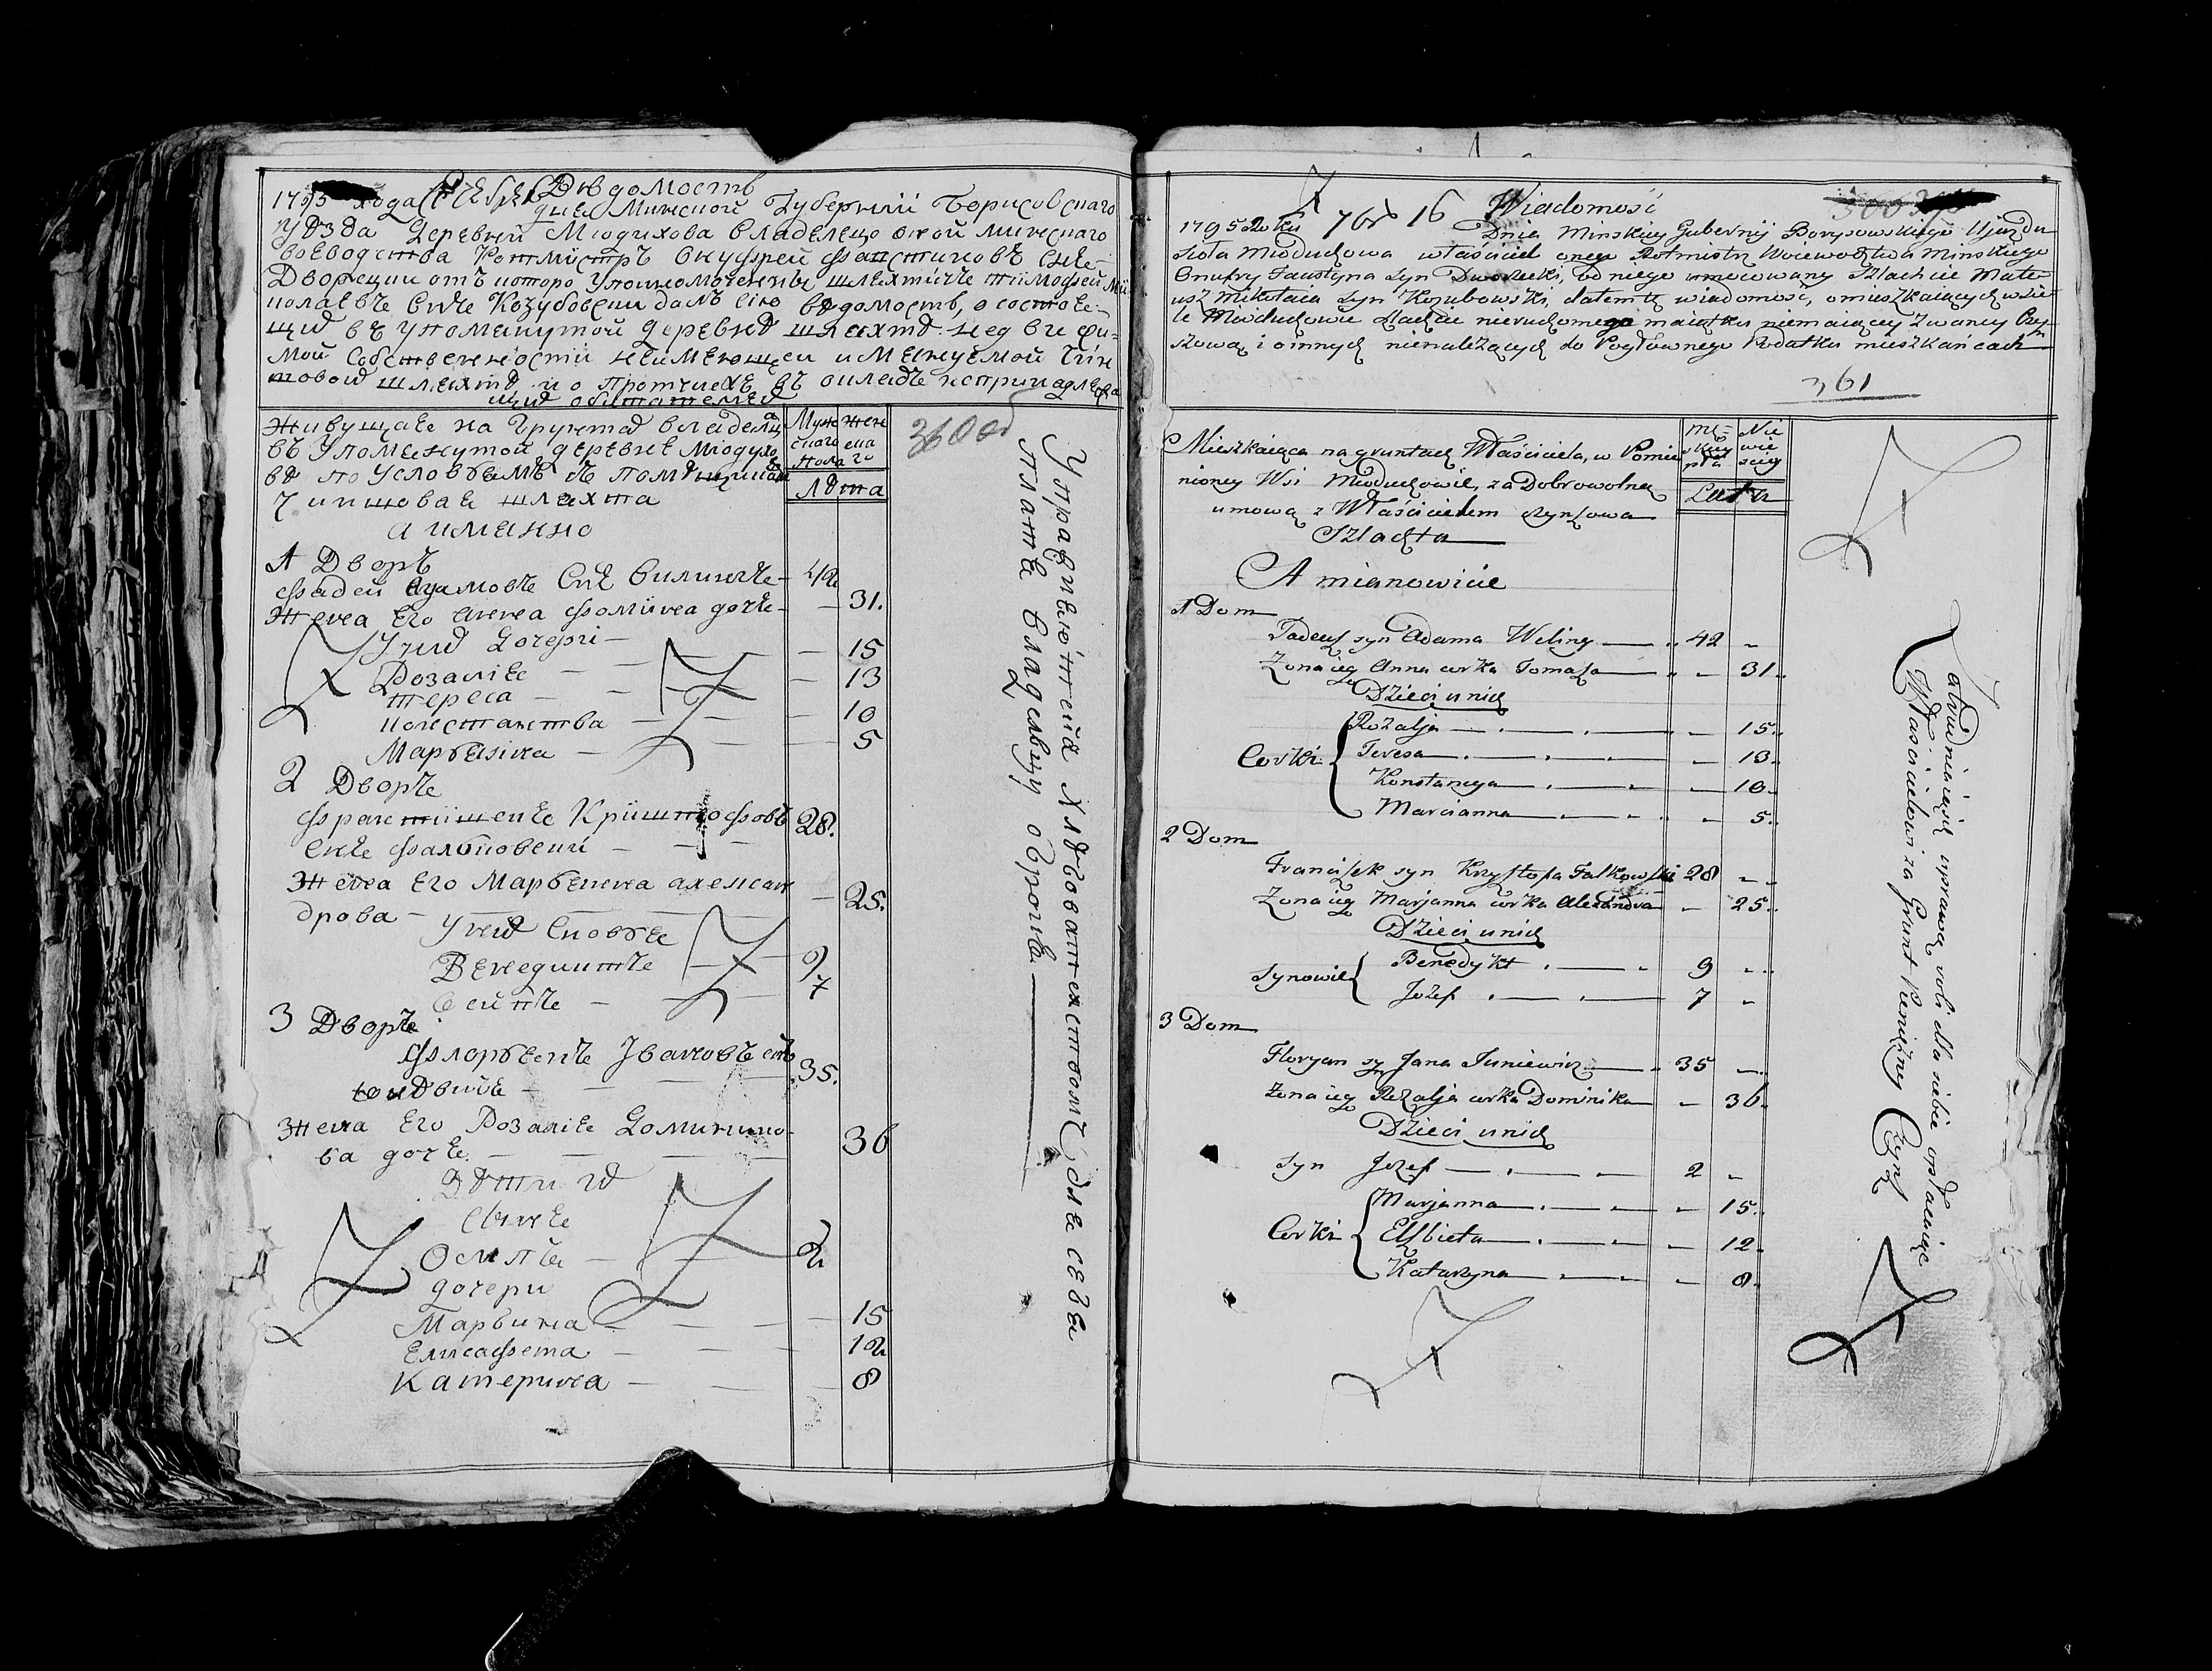 Вѣдомость
1795 года
дня Минской Губернии Борисовскаго
уѣзда деревни Миодухова владелецъ оной минскаго
воеводства Ротмистръ Онуфрей Фаустиновъ сынъ
Дворжецки отъ которо уполномоченны шляхтичъ
колаевъ сынъ Козубовски далъ сию вѣдомость, о состоя-
щий въ упоменутой деревнѣ шляхтѣ недвижи-
мой собственности неимеющей именуемой чин
шовой шляхтѣ и о протчихъ въ окладъ непринадлежа
щих обитателей
360 об
Живущае на грунтѣ владельц
въ упоменутой деревне Миодухо
вѣ по условиямъ съ помѣщикам
Чиншовае шляхта
а имянно
Мужескаго пола
женскаго
лѣта
1 Дворъ
Фадей Адамовъ Снъ Вилингъ 42
Жена Его Анна Фомина дочъ 31.
У них дочери
Розалие 15
Тереса 13
Констанства 10
Маръяна 5
2 Дворъ
Франтишекъ Криштофовъ 28.
Снъ Фалковски
Жена Его Маръянна Алексан
дрова 25.
У них сновъе
Бенедиктъ 9
Осипъ 7
3 Дворъ
Флоръенъ Ивановъ снъ
Юневичъ 35.
Жена Его Розалие Доминико-
ва дочъ 36
Дѣти их
Сынъ
Осипъ 2
дочери
Маръина 15
Елисафета 12
Катерина 8
Управляютца хлѣбопашеством для себя
платя владельцу оброкъ
7 16
Wiadomość
1795 Roku Dnia Minskiey Gubernij Borysowskiego Ujazdu
Sioła Mioduchowa właściciel onego Rotmistrz Woiewodztwa Minskiego
Onufry Faustyna syn Dworzecki, od niego umocowany Szlachcic Mate-
usz Mikołaia syn Kozubowski, dałem tę wiadomość, o mieszkaiących w sie-
le Mioduchowie szlachcie nieruchomego maiątku niemaiącey zwaney Czyn-
szową i o innych nienależących do Pogłownego Podatku mieszkańcach
361
Mieszkaiąca na gruntach Właściciela, w Pomie
nioney Wsi Mioduchowie, za Dobrowolną
umową z Właścicielem czynszowa
Szlachta
A mianowicie
Mę-
skiey
płci
Nie
wie
sciey
Lata
1 Dom
Tadeusz syn Adama Weling 42
Zona iego Anna corka Tomasza 31.
Dzieci u nich
Corki
Rozalja 15.
Teresa 13.
Konstancya 10.
Marcianna 5.
2 Dom
Franciszek syn Krzysztofa Falkowski 28
Zona iego Marjanna corka Alexandra 25.
Dzieci u nich
Synowie
Benedykt 9
Jozef 7
3 Dom
Floryan syn Jana Juniewicz 35
Zona iego Rozalja corka Dominika 36.
Dzieci u nich
Syn Jozef 2
Corki
Marjanna 15.
Elzbieta 12.
Katarzyna 8.
Zatrudniaią się uprawą roli dla siebie opłacaiąc
Właścicielowi za Grunt Pieniężny Czynsz